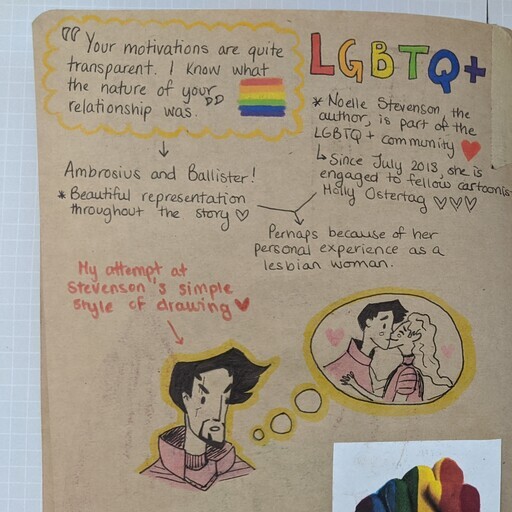 " Your motivations are quite
transparent. I know what
the nature of your
relationship was. "
Ambrosius and Ballister!
* Beautiful representation
throughout the story ♡
LGBTQ+
* Noelle Stevenson, the
author, is part of the
LGBTQ + community ♥
↳ Since July 2018, she is
engaged to fellow cartoonis
Molly Ostertag ♡♡♡
Perhaps because of her
personal experience as a
lesbian woman.
My attempt at
Stevenson's simple
style of drawing ♥